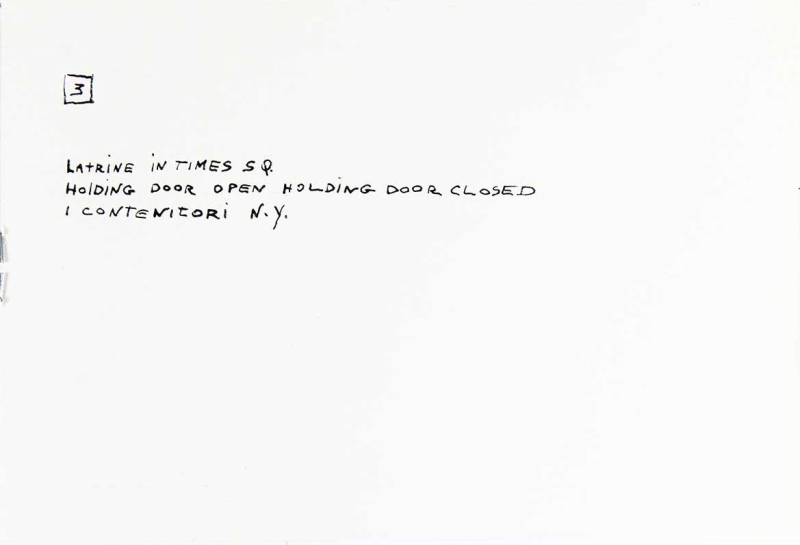 3
LATRINE IN TIMES SQ.
HOLDING DOOR OPEN HOLDING DOOR CLOSED
I CONTENITORI N.Y.